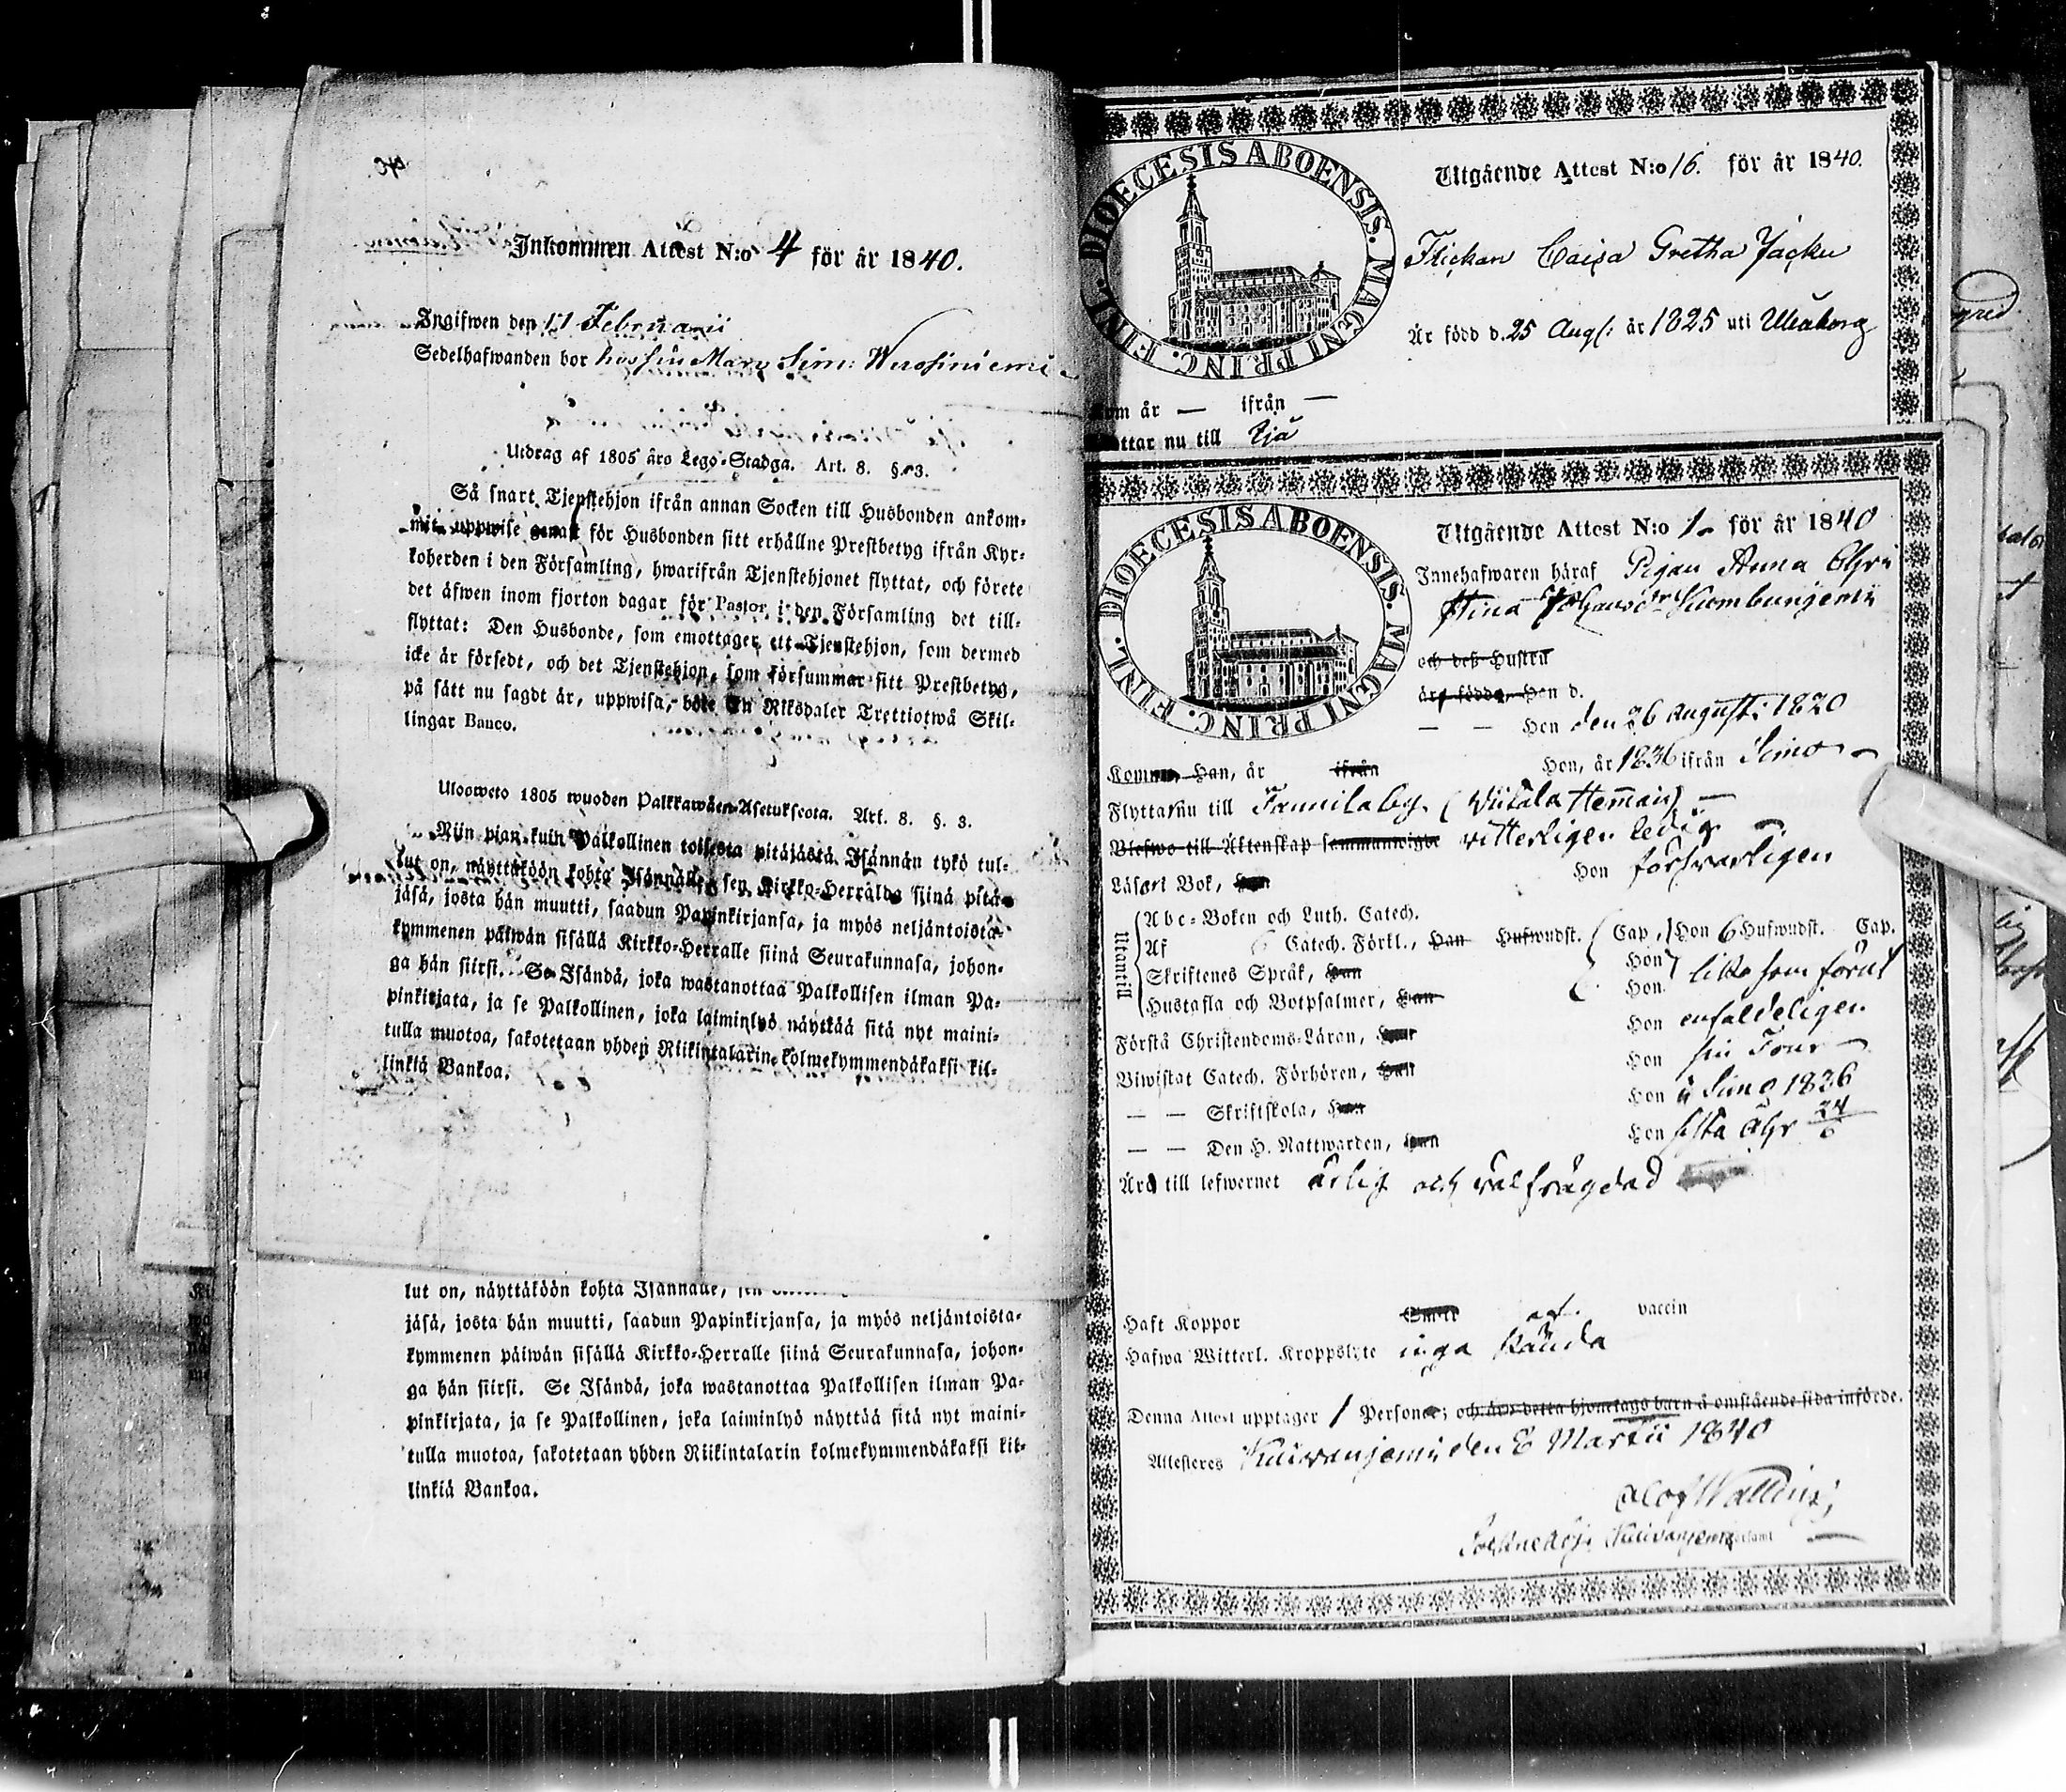 40
Inkommen Attest N:o 4 för år 1840.
Ingifwen den 17 Februarii
Sedelhafwanden bor hos sin Man Sim: Wuosiniemi
Utdrag af 1805 års Lego-Stadga. Art. 8. §. 3.
Så snart Tjenstehjon ifrån annan Socken till Husbonden ankom-
mit, uppwise genast för Husbonden sitt erhållne Prestbetyg ifrån Kyr-
koherden i den Församling, hwarifrån Tjenstehjonet flyttat, och förete
det äfwen inom fjorton dagar för Pastor i den Församling det till-
flyttat: Den Husbonde, som emottager ett Tjenstehjon, som dermed
icke är försedt, och det Tjenstehjon, som försummar sitt Prestbetyg,
på sätt nu sagdt är, uppwisa, böte En Riksdaler Trettiotwå Skil-
lingar Banco.
Ulosweto 1805 wuoden Palkkawäen-Asetuksesta. Art. 8. §. 3.
Niin pian kuin Palkollinen toisesta pitäjästä Isännän tykö tul-
lut on, näyttäköön kohta Isännälle, sen Kirkko-Herralda siinä pitä-
jäsä, josta hän muutti, saadun Papinkirjansa, ja myös neljäntoista-
kymmenen päiwän sisällä Kirkko-Herralle siinä Seurakunnasa, johon-
ga hän siirsi. Se Isändä, joka wastanottaa Palkollisen ilman Pa-
pinkirjata, ja se Palkollinen, joka laiminlyö näyttää sitä nyt maini-
tulla muotoa, sakotetaan yhden Riikintalarin kolmekymmendäkaksi kil-
linkiä Bankoa.
lut on, näyttäköön kohta Isännälle, sen
jäsä, josta hän muutti, saadun Papinkirjansa, ja myös neljäntoista-
kymmenen päiwän sisällä Kirkko-Herralle siinä Seurakunnasa, johon-
ga hän siirsi. Se Isändä, joka wastanottaa Palkollisen ilman Pa-
pinkirjata, ja se Palkollinen, joka laiminlyö näyttää sitä nyt maini-
tulla muotoa, sakotetaan yhden Riikintalarin kolmekymmendäkaksi kil-
linkiä Bankoa.
FINL. DIOECESIS ABOENSIS. MAGNI PRINC.
Utgående Attest N:o 16. för år 1840.
Flickan Caisa Gretha Jacku
Är född d. 25 Aug: år 1825 uti Uleåborg
Kom år — ifrån —
Flyttar nu till Ijå
FINL. DIOECESIS ABOENSIS. MAGNI PRINC.
Utgående Attest N:o 1. för år 1840
Innehafwaren häraf Pigan Anna Chri
stina Johansdr
och deß Hustru
äro födde, Han d.
— — Hon den 26 Augusti 1820
Komne, Han, år ifrån Hon, år 1836 ifrån Simo
Flyttar nu till Tannila by. (Wiitala Heman) —
Blefwo till Äktenskap sammanwigde witterligen ledig
Läsa i Bok, Han Hon förswarligen
Utantill
Abc-Boken och Luth. Catech.
Af 6 Catech. Förkl., Han Hufwudst. Cap, Hon 6 Hufwudst. Cap.
Skriftenes Språk, Han Hon lika som förut
Hustafla och Botpsalmer, Han Hon
Förstå Christendoms-Läran, Han Hon enfaldeligen
Biwistat Catech. Förhören, Han Hon sin Tour
— — Skriftskola, Han Hon i Simo 1836
— — Den H. Nattwarden, Han Hon sista åhr 24/6
Äro till lefwernet ärlig och välfrägdad
Haft Koppor Smitt af. vaccin
Hafwa Witterl. Kroppslyte inga kända
Denna Attest upptager 1 Personer; och äro detta hjonetags barn å omstående sida införde.
Attesteres Kuiwaniemi den 8 Martii 1840
Olof Walling
Kuivaniemi